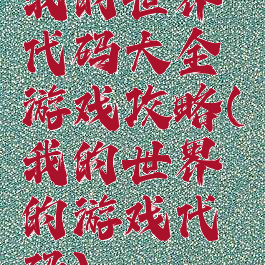 我的世界
代码大全
游戏攻略(
我的世界
的游戏代
码)